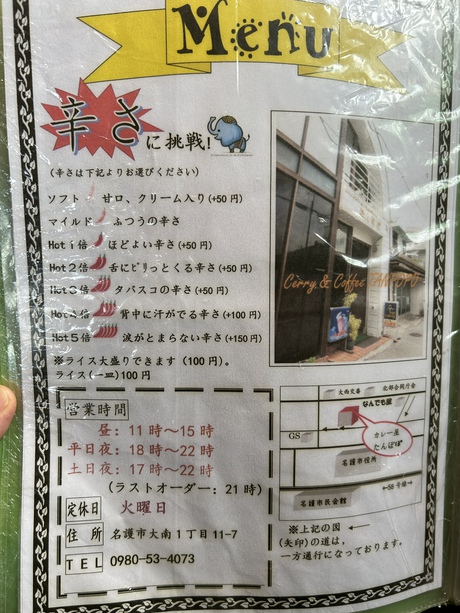 Menu
辛さに挑戦!
(辛さは下記よりお選びください)
ソフト 甘口、クリーム入り(+50円)
マイルド ふつうの辛さ
Hot1倍 ほどよい辛さ(+50円)
Hot2倍 舌にピリっとくる辛さ(+50円)
Hot3倍 タバスコの辛さ(+50円)
Hot4倍 背中に汗がでる辛さ(+100円)
Hot5倍 涙がとまらない辛さ(+150円)
※ライス大盛りできます(100円)。
ライス(一皿)100円
Cerry & Coffee TANPOPO
営業時間
昼: 11時~15時
平日夜: 18時~22時
土日夜: 17時~22時
(ラストオーダー: 21時)
定休日 火曜日
住所 名護市大南1丁目11-7
TEL 0980-53-4073
大西交番
北部合同庁舎
なんでも屋
GS
カレー屋
たんぽぽ
名護市役所
←58号線→
名護市民会館
※上記の図 ←
(矢印)の道は、
一方通行になっております。